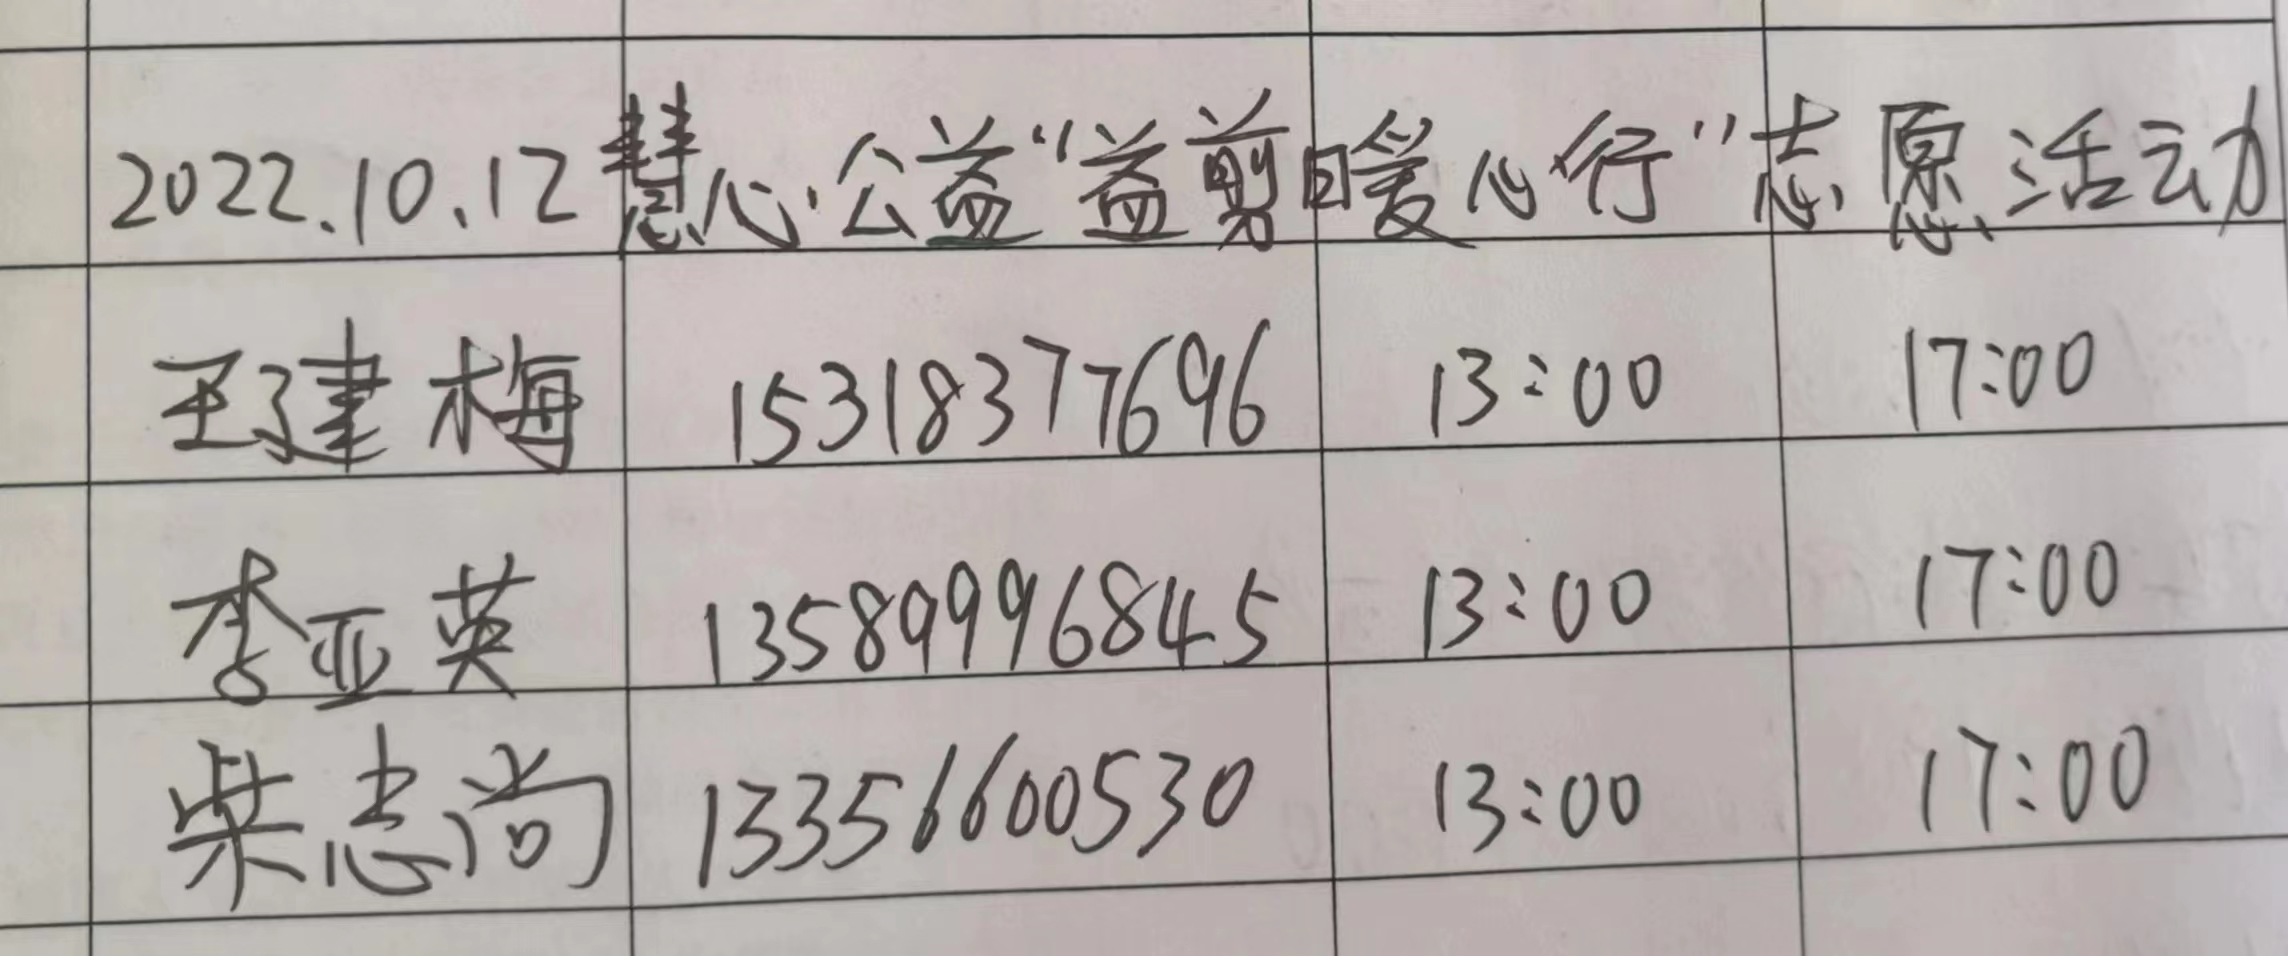 2022.10.12 慧心公益“益剪暖心行”志愿活动
王建梅 15318377696 13:00 17:00
李亚英 13589996845 13:00 17:00
柴志尚 13356600530 13:00 17:00